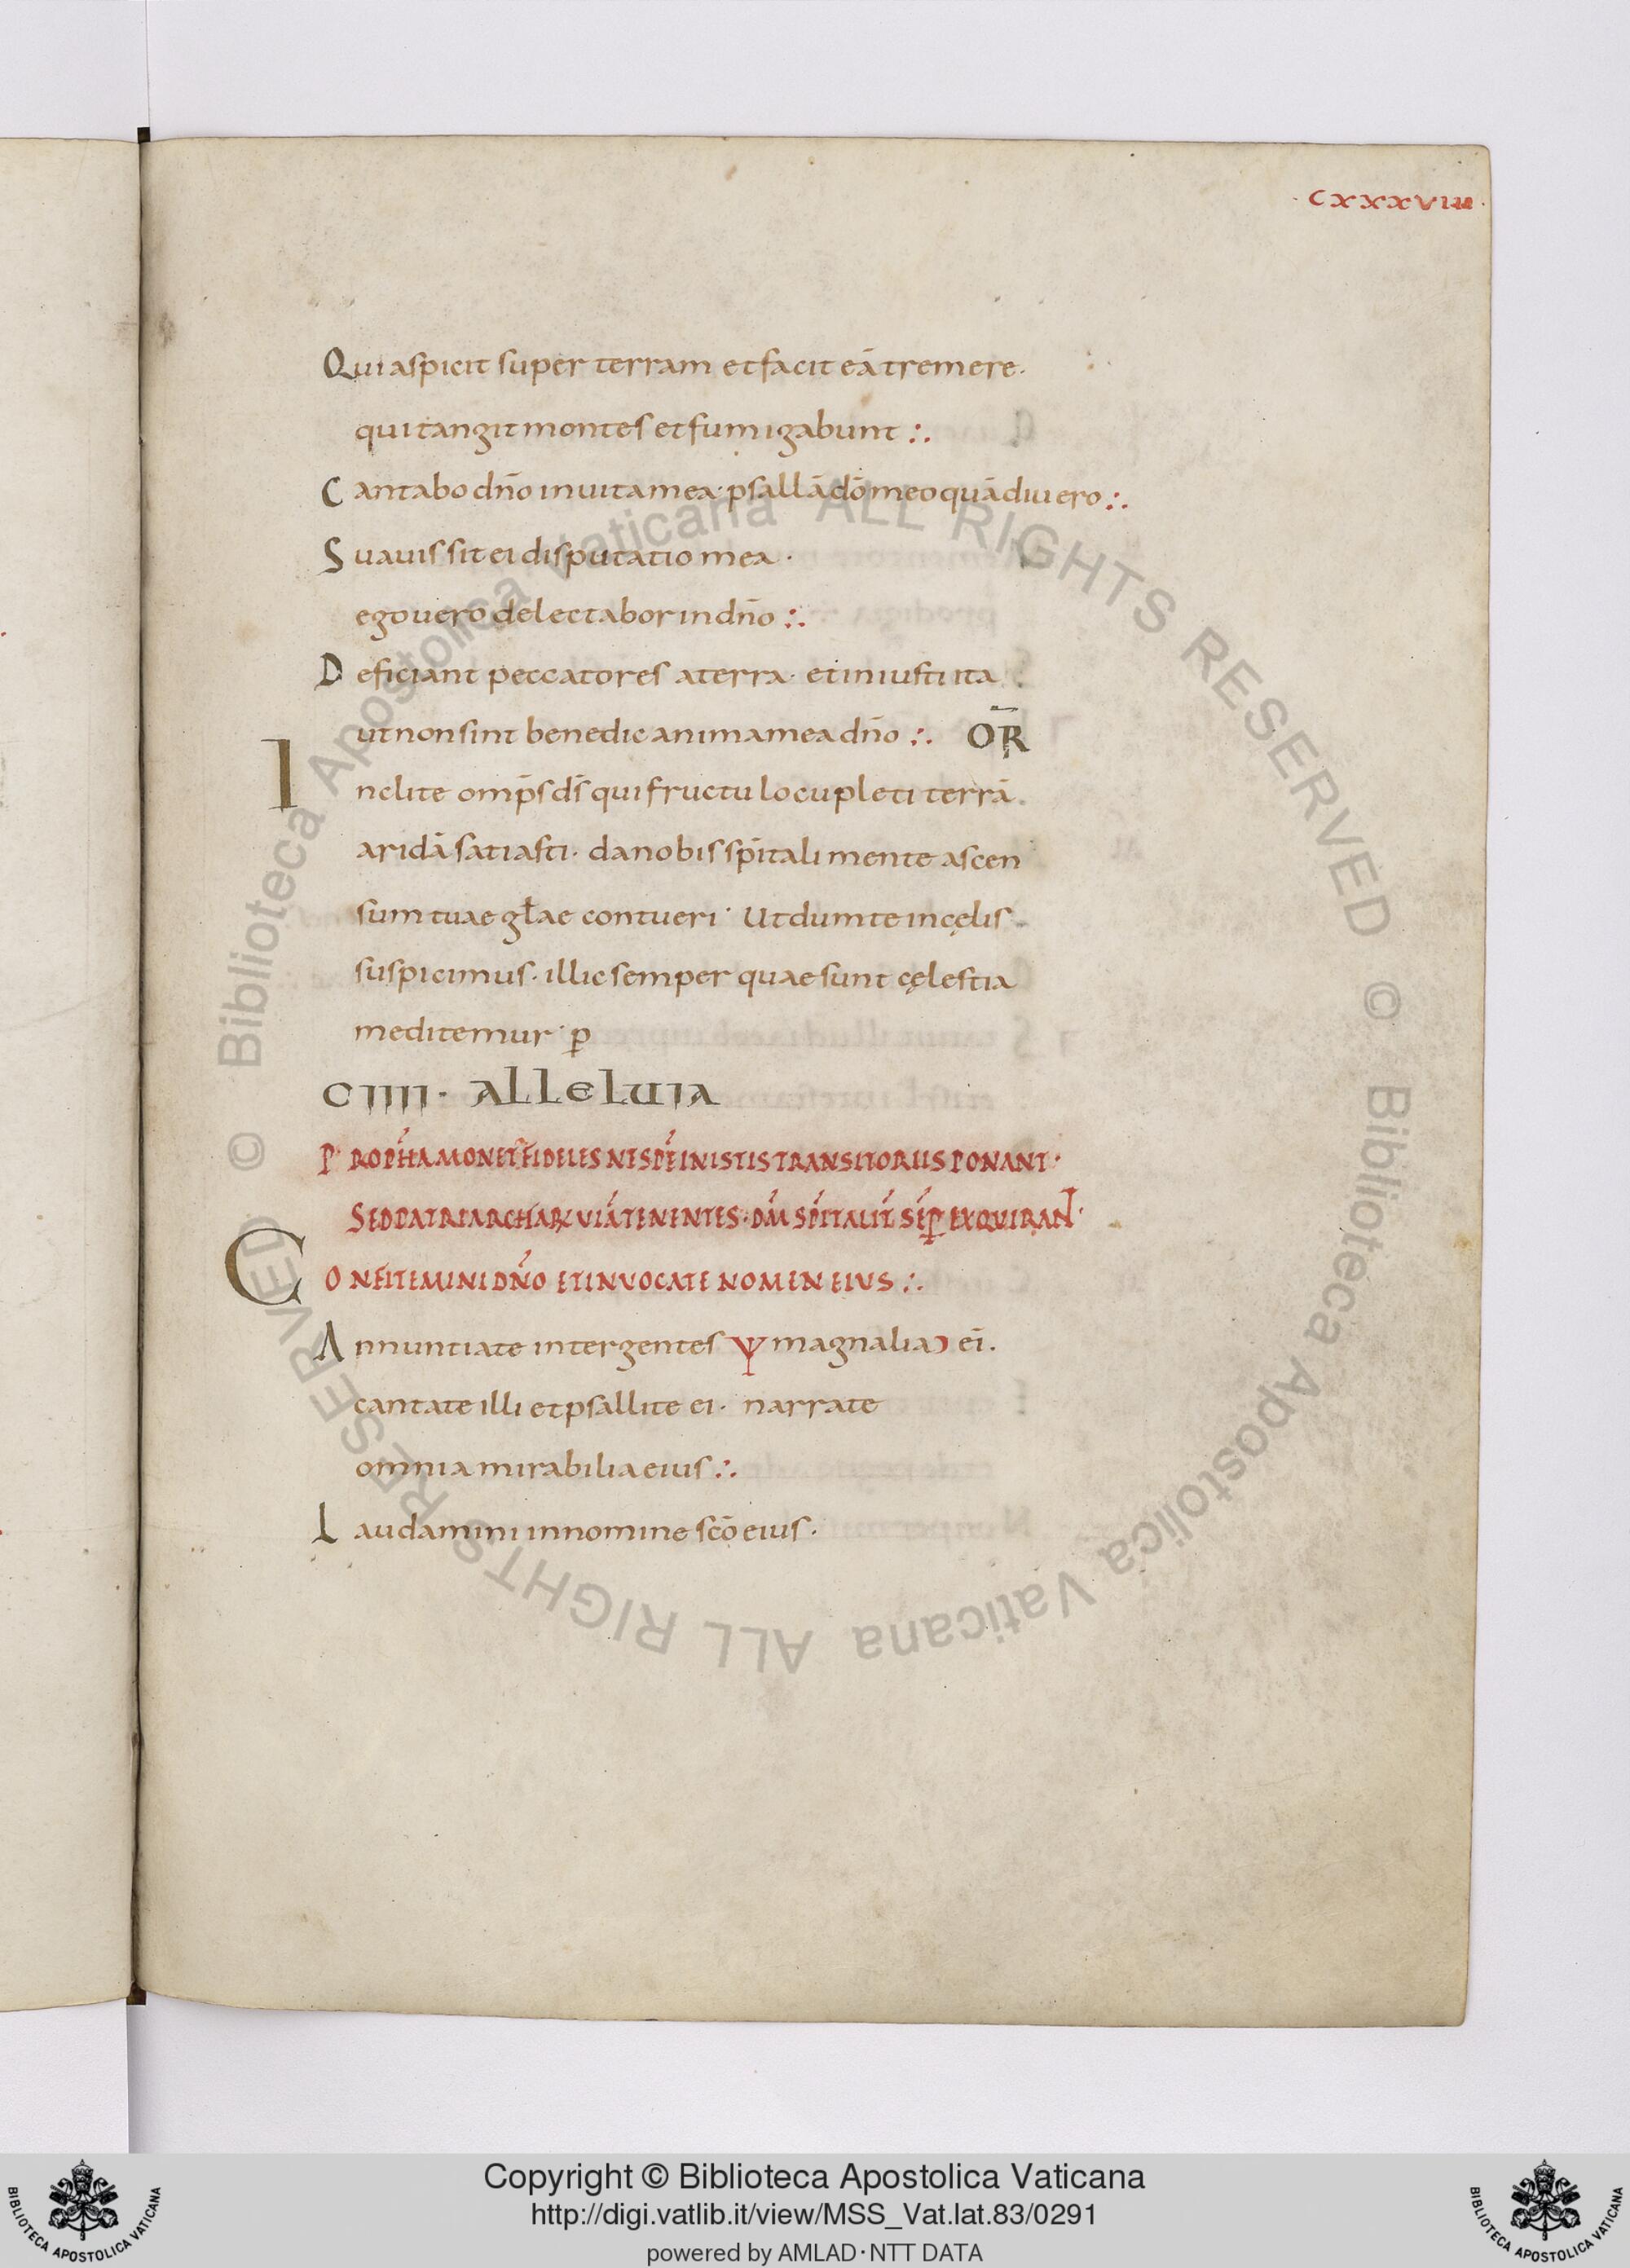 · CXXXVIIII ·
Qui aspicit super terram et facit eā tremere·
qui tangit montes et fumigabunt :·
Cantabo dn̄o in uita mea· psallā dō meo quādiu ero :·
Suauis sit ei disputatio mea ·
ego uero delectabor in dn̄o :·
Deficiant peccatores a terra· et iniusti ita
ut non sint benedic anima mea dn̄o :· OR̄
Inclite omp̄s ds̄ qui fructu locupleti terrā
aridā satiasti· da nobis sp̄itali mente ascen
sum tuae gl̄ae contueri· Ut dum te in cęlis
suspicimus· illic semper quae sunt cęlestia
meditemur· p̄
CIIII· ALLELUIA
PROPH̄A MONET FIDELES NE SPĒ IN ISTIS TRANSITORIIS PONANT·
SED PATRIARCHARꝜ UIĀ TENENTES· DM̄ SP̄ITALIT̄ SĒꝑ EXQUIRANT̄·
CONFITEMINI DN̄O ET INVOCATE NOMEN EIVS :·
Annuntiate inter gentes Ψ magnalia ꓛ eī·
cantate illi et psallite ei· narrate
omnia mirabilia eius :·
Laudamini in nomine scō eius·
© Biblioteca Apostolica Vaticana ALL RIGHTS RESERVED © Biblioteca Apostolica Vaticana ALL RIGHTS RESERVED
BIBLIOTECA APOSTOLICA VATICANA
Copyright © Biblioteca Apostolica Vaticana
http://digi.vatlib.it/view/MSS_Vat.lat.83/0291
powered by AMLAD·NTT DATA
BIBLIOTECA APOSTOLICA VATICANA